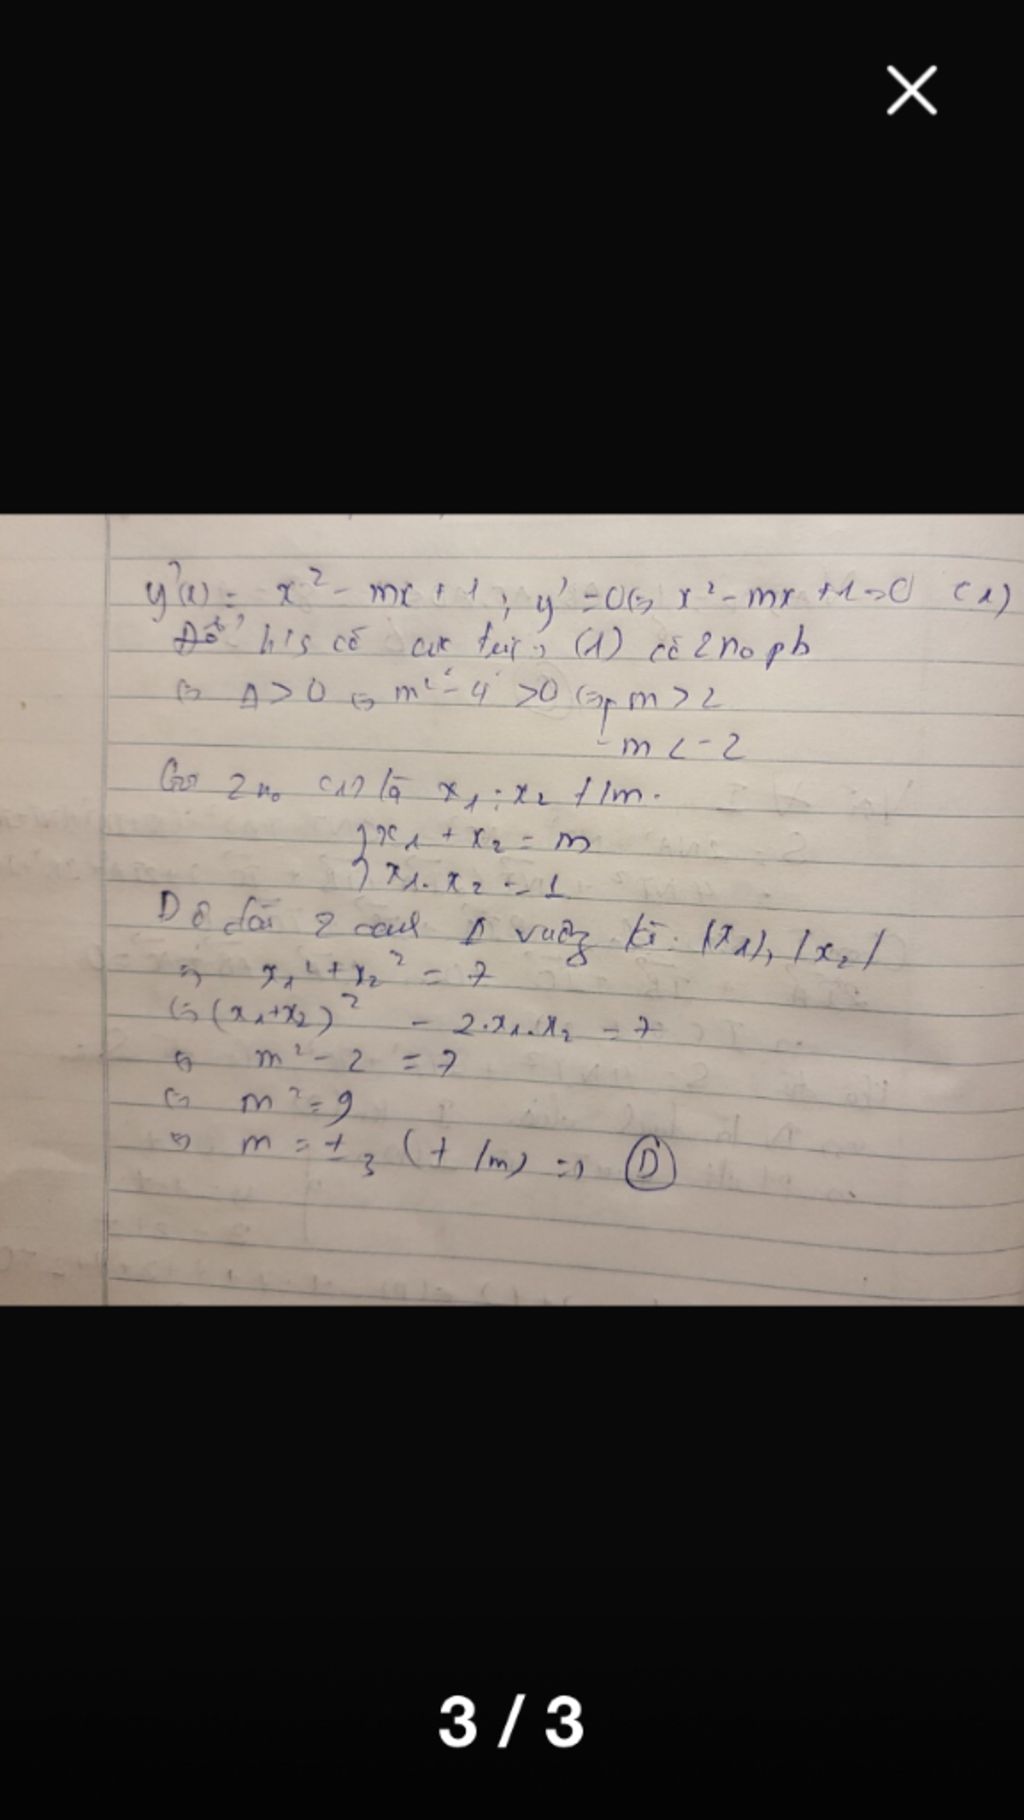 y'(x) = x² - mx + 1 ; y' = 0 ⇔ x² - mx + 1 = 0 (1)
Để h/s có cực trị ⇒ (1) có 2 no pb
⇔ Δ > 0 ⇔ m² - 4 > 0 ⇔ m > 2
m < -2
Gọi 2 no (1) là x₁ ; x₂ t/m.
{ x₁ + x₂ = m
{ x₁. x₂ = 1
Độ dài 2 cạnh Δ vuông là: |x₁|, |x₂|
⇒ x₁² + x₂² = 7
⇔ (x₁+x₂)² - 2.x₁.x₂ = 7
⇔ m² - 2 = 7
⇔ m² = 9
⇔ m = ± 3 (t/m) ⇒ D
3 / 3